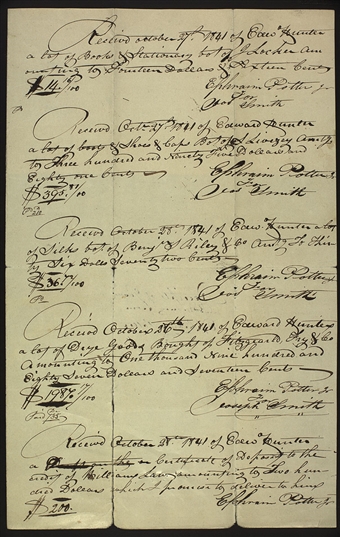 Received october 27th 1841 of Edwd Hunter
a lot of Books & Stationary bot of J Locken am
ounting to Fourteen Dollars & Sixteen Cents
$14.16/100
Ephraim Potter Jr
for
Smith
Receivd Octr 27th 1841 of Edward Hunter
a lot of boots & Shoes & Caps Bot of Livezey Amtg
to Three hundred and Ninety Five Dollars and
Eighty one cents
$395.81/100
Ephraim Potter Jr
for
Smith
Receivd October 28th 1841 of Edwd Hunter a lot
of Silks bot of Benj S Riley & Co Amtg To Thir
ty Six Dolls Seventy two Cents
$36.72/100
Ephraim Potter Jr
for
Smith
Receivd October 26th 1841 of Edward Hunter
a lot of Drye Goods Bought of & Co
Amounting to One thousand Nine hundred and
Eighty Seven Dollars and Seventeen Cents
$1987.17/100
Ephraim Potter Jr
for
Joseph Smith
Receivd October 28th 1841 of Edwd Hunter
a Certificate of Deposit to the
credit of William Law amounting to Two hun
dred Dollars which I promise to deliver to him
$200.
Ephraim Potter Jr